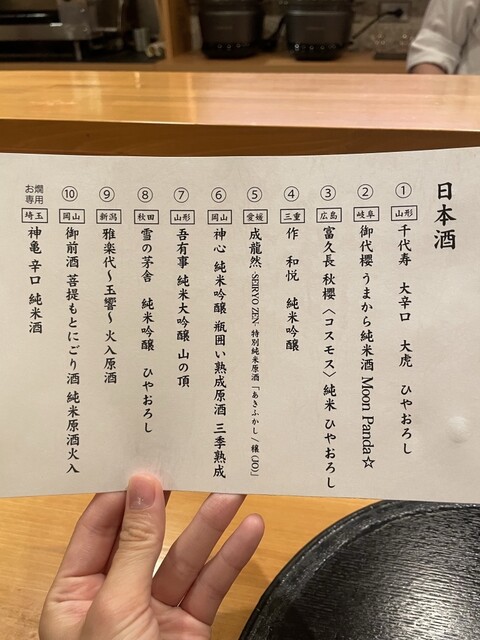 日本酒
① 山形 千代寿 大辛口 大虎 ひやおろし
② 岐阜 御代櫻 うまから純米酒 Moon Panda☆
③ 広島 富久長 秋櫻〈コスモス〉純米 ひやおろし
④ 三重 作 和悦 純米吟醸
⑤ 愛媛 成龍然 -SEIRYO ZEN- 特別純米原酒「あきふかし / 穣 (JO)」
⑥ 岡山 神心 純米吟醸 瓶囲い熟成原酒 三季熟成
⑦ 山形 吾有事 純米大吟醸 山の頂
⑧ 秋田 雪の茅舎 純米吟醸 ひやおろし
⑨ 新潟 雅楽代～玉響～ 火入原酒
⑩ 岡山 御前酒 菩提もとにごり酒 純米原酒火入
燗用お専 埼玉 神亀 辛口 純米酒